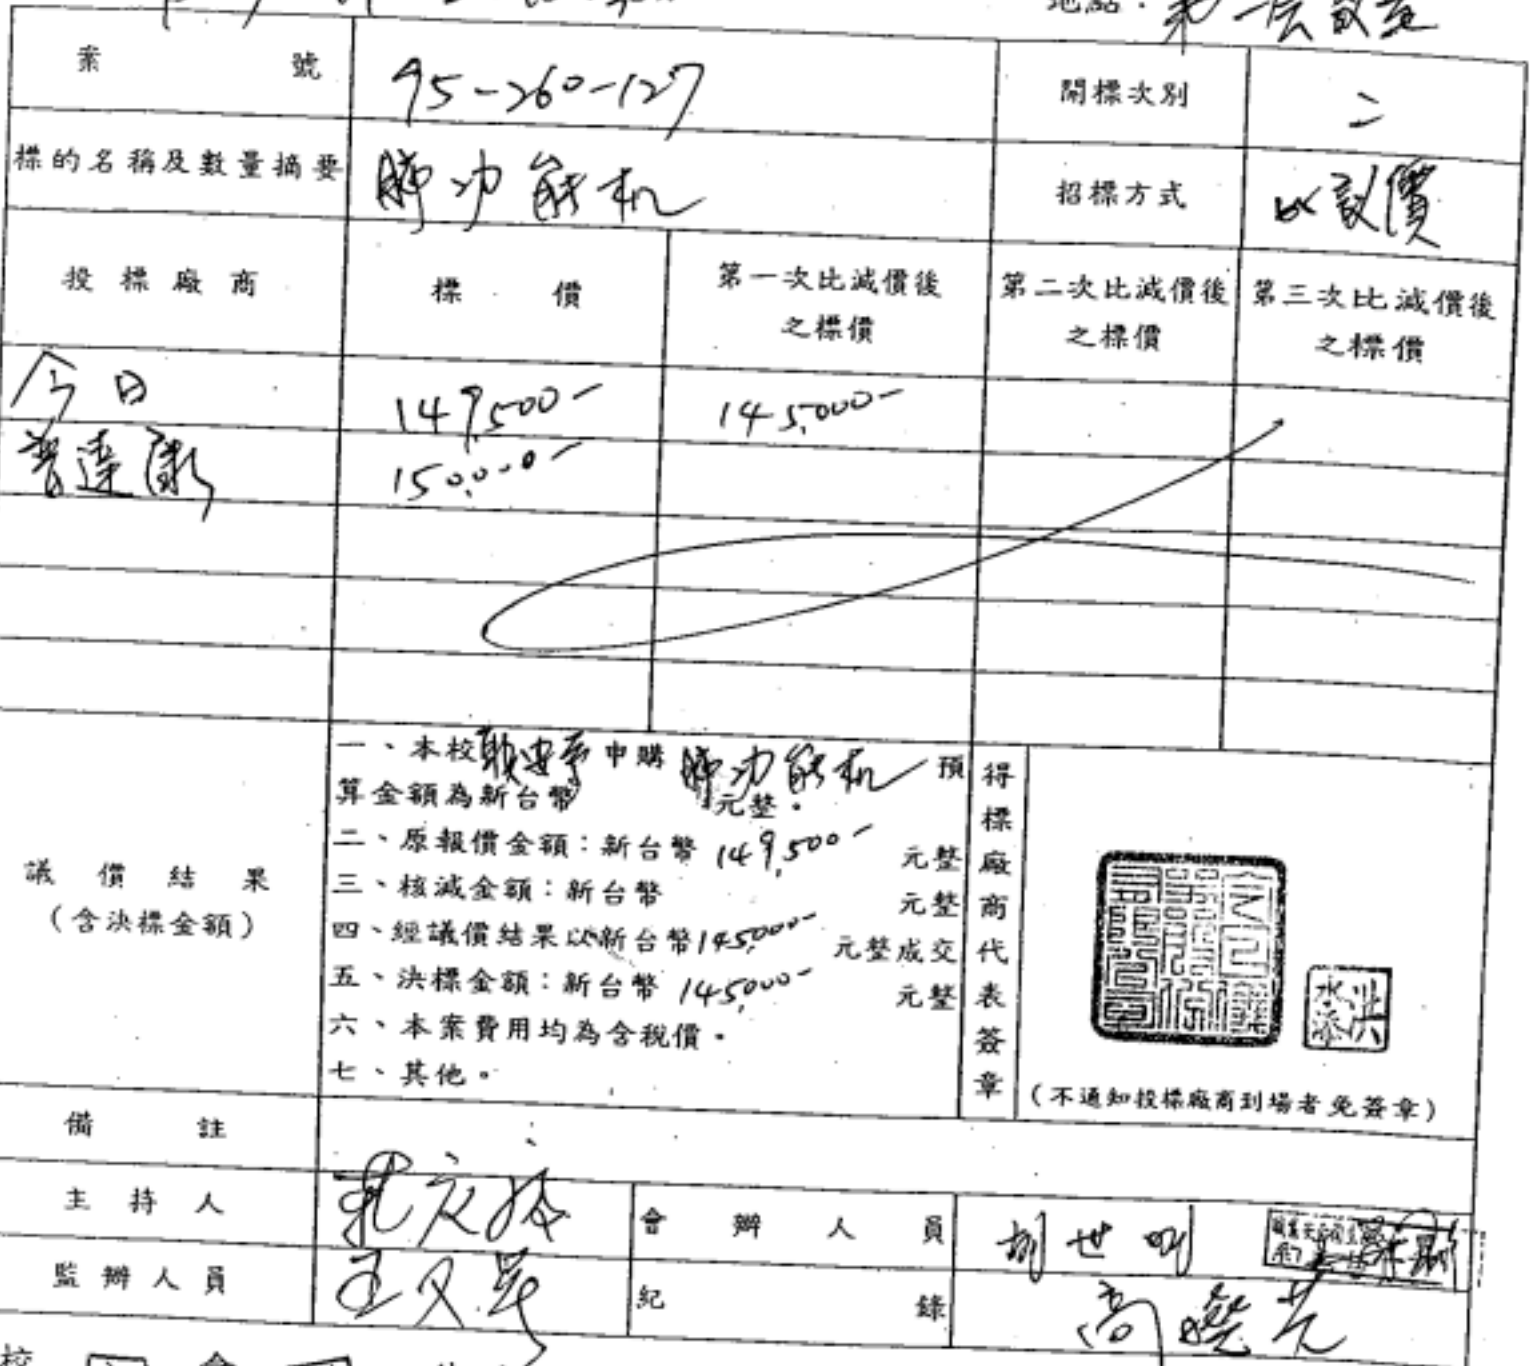 地點：第一會議室
案號 95-260-127 開標次別 二
標的名稱及數量摘要 肺功能机 招標方式 議價
投標廠商 標價 第一次比減價後之標價 第二次比減價後之標價 第三次比減價後之標價
今日 149,500- 145,000-
普達康 150,000-
一、本校 申購 肺功能机 預
算金額為新台幣 元整。
二、原報價金額：新台幣 149,500- 元整
三、核減金額：新台幣 元整
四、經議價結果以新台幣145,000- 元整成交
五、決標金額：新台幣 145,000- 元整
六、本案費用均為含稅價。
七、其他。
議價結果
（含決標金額）
得標廠商代表簽章
洪水添
（不通知投標廠商到場者免簽章）
備註
主持人
會辦人員 胡世明
監辦人員 王又
紀錄 高曉
校